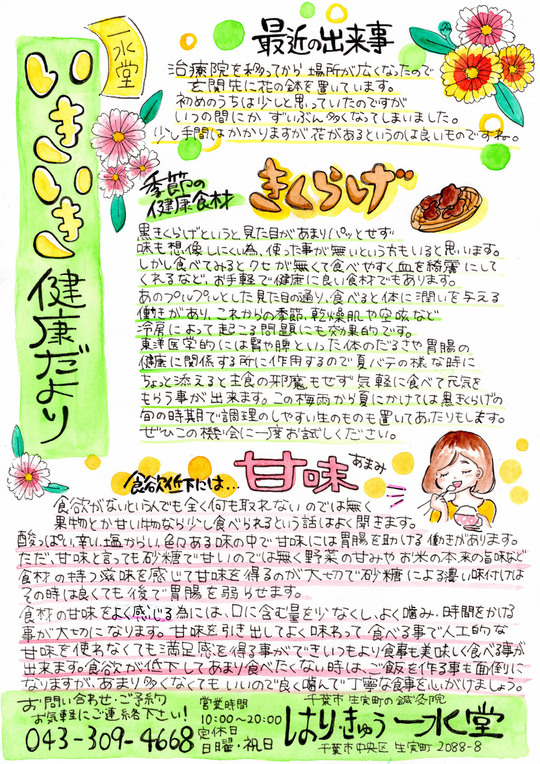 一水堂
いきいき
健康だより
最近の出来事
治療院を移ってから場所が広くなったので
玄関先に花の鉢を置いています。
初めのうちは少しと思っていたのですが
いつの間にかずいぶん多くなってしまいました。
少し手間はかかりますが花があるというのは良いものですね。
季節の
健康食材
きくらげ
黒きくらげというと見た目があまりパッとせず
味も想像しにくい為、使った事が無いという方もいると思います。
しかし食べてみるとクセが無くて食べやすく血を綺麗にして
くれるなど、お手軽で健康に良い食材でもあります。
あのプルプルっとした見た目の通り、食べると体に潤いを与える
働きがあり、これからの季節、乾燥肌や空咳など
冷房によって起こる問題にも効果的です。
東洋医学的には腎や脾といった体のだるさや胃腸の
健康に関係する所に作用するので夏バテの様な時に
ちょっと添えると主食の邪魔もせず気軽に食べて元気を
もらう事が出来ます。この梅雨から夏にかけては黒きくらげの
旬の時期で調理のしやすい生のものも置いてあったりもします。
ぜひこの機会に一度お試しください。
食欲低下には…
甘味
あまみ
食欲がないといんでも全く何も取れないのでは無く
果物とか甘い物なら少し食べられるという話はよく聞きます。
酸っぱい、辛い、塩からい、色々ある味の中で甘味には胃腸を助ける働きがあります。
ただ、甘味と言っても砂糖で甘いのでは無く野菜の甘みやお米の本来の旨味など
食材の持つ滋味を感じて甘味を得るのが大切で砂糖による濃い味付けは
その時は良くても後で胃腸を弱らせます。
食材の甘味をよく感じる為には、口に含む量を少なくし、よく噛み、時間をかける
事が大切になります。甘味を引き出してよく味わって食べる事で人工的な
甘味を使わなくても満足感を得る事ができいつもより食事も美味しく食べる事が
出来ます。食欲が低下してあまり食べたくない時は、ご飯を作る事も面倒に
なりますが、あまり多くなくてもいいので良く噛んで丁寧な食事を心がけましょう。
お問い合わせ・ご予約
お気軽にご連絡下さい!
043-309-4668
営業時間
10:00〜20:00
定休日
日曜・祝日
千葉市 生実町の鍼灸院
はりきゅう 一水堂
千葉市中央区 生実町 2088-8